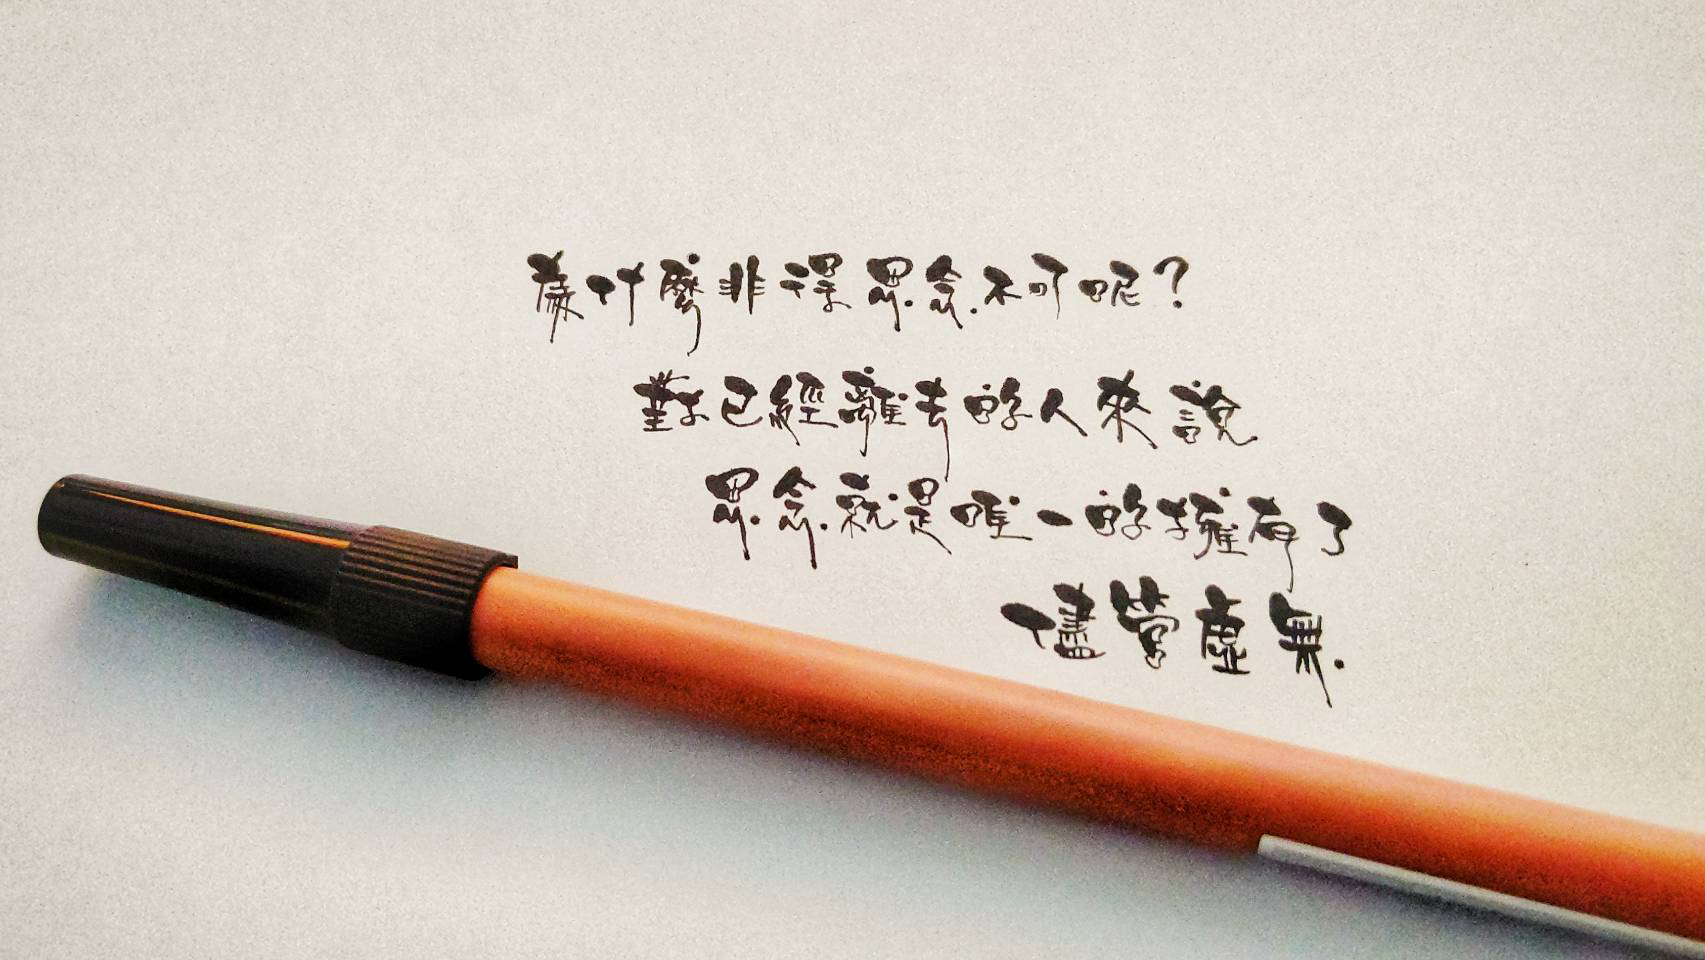 為什麼非得思念不可呢?
對已經離去的人來說
思念就是唯一的擁有了
儘管虛無.